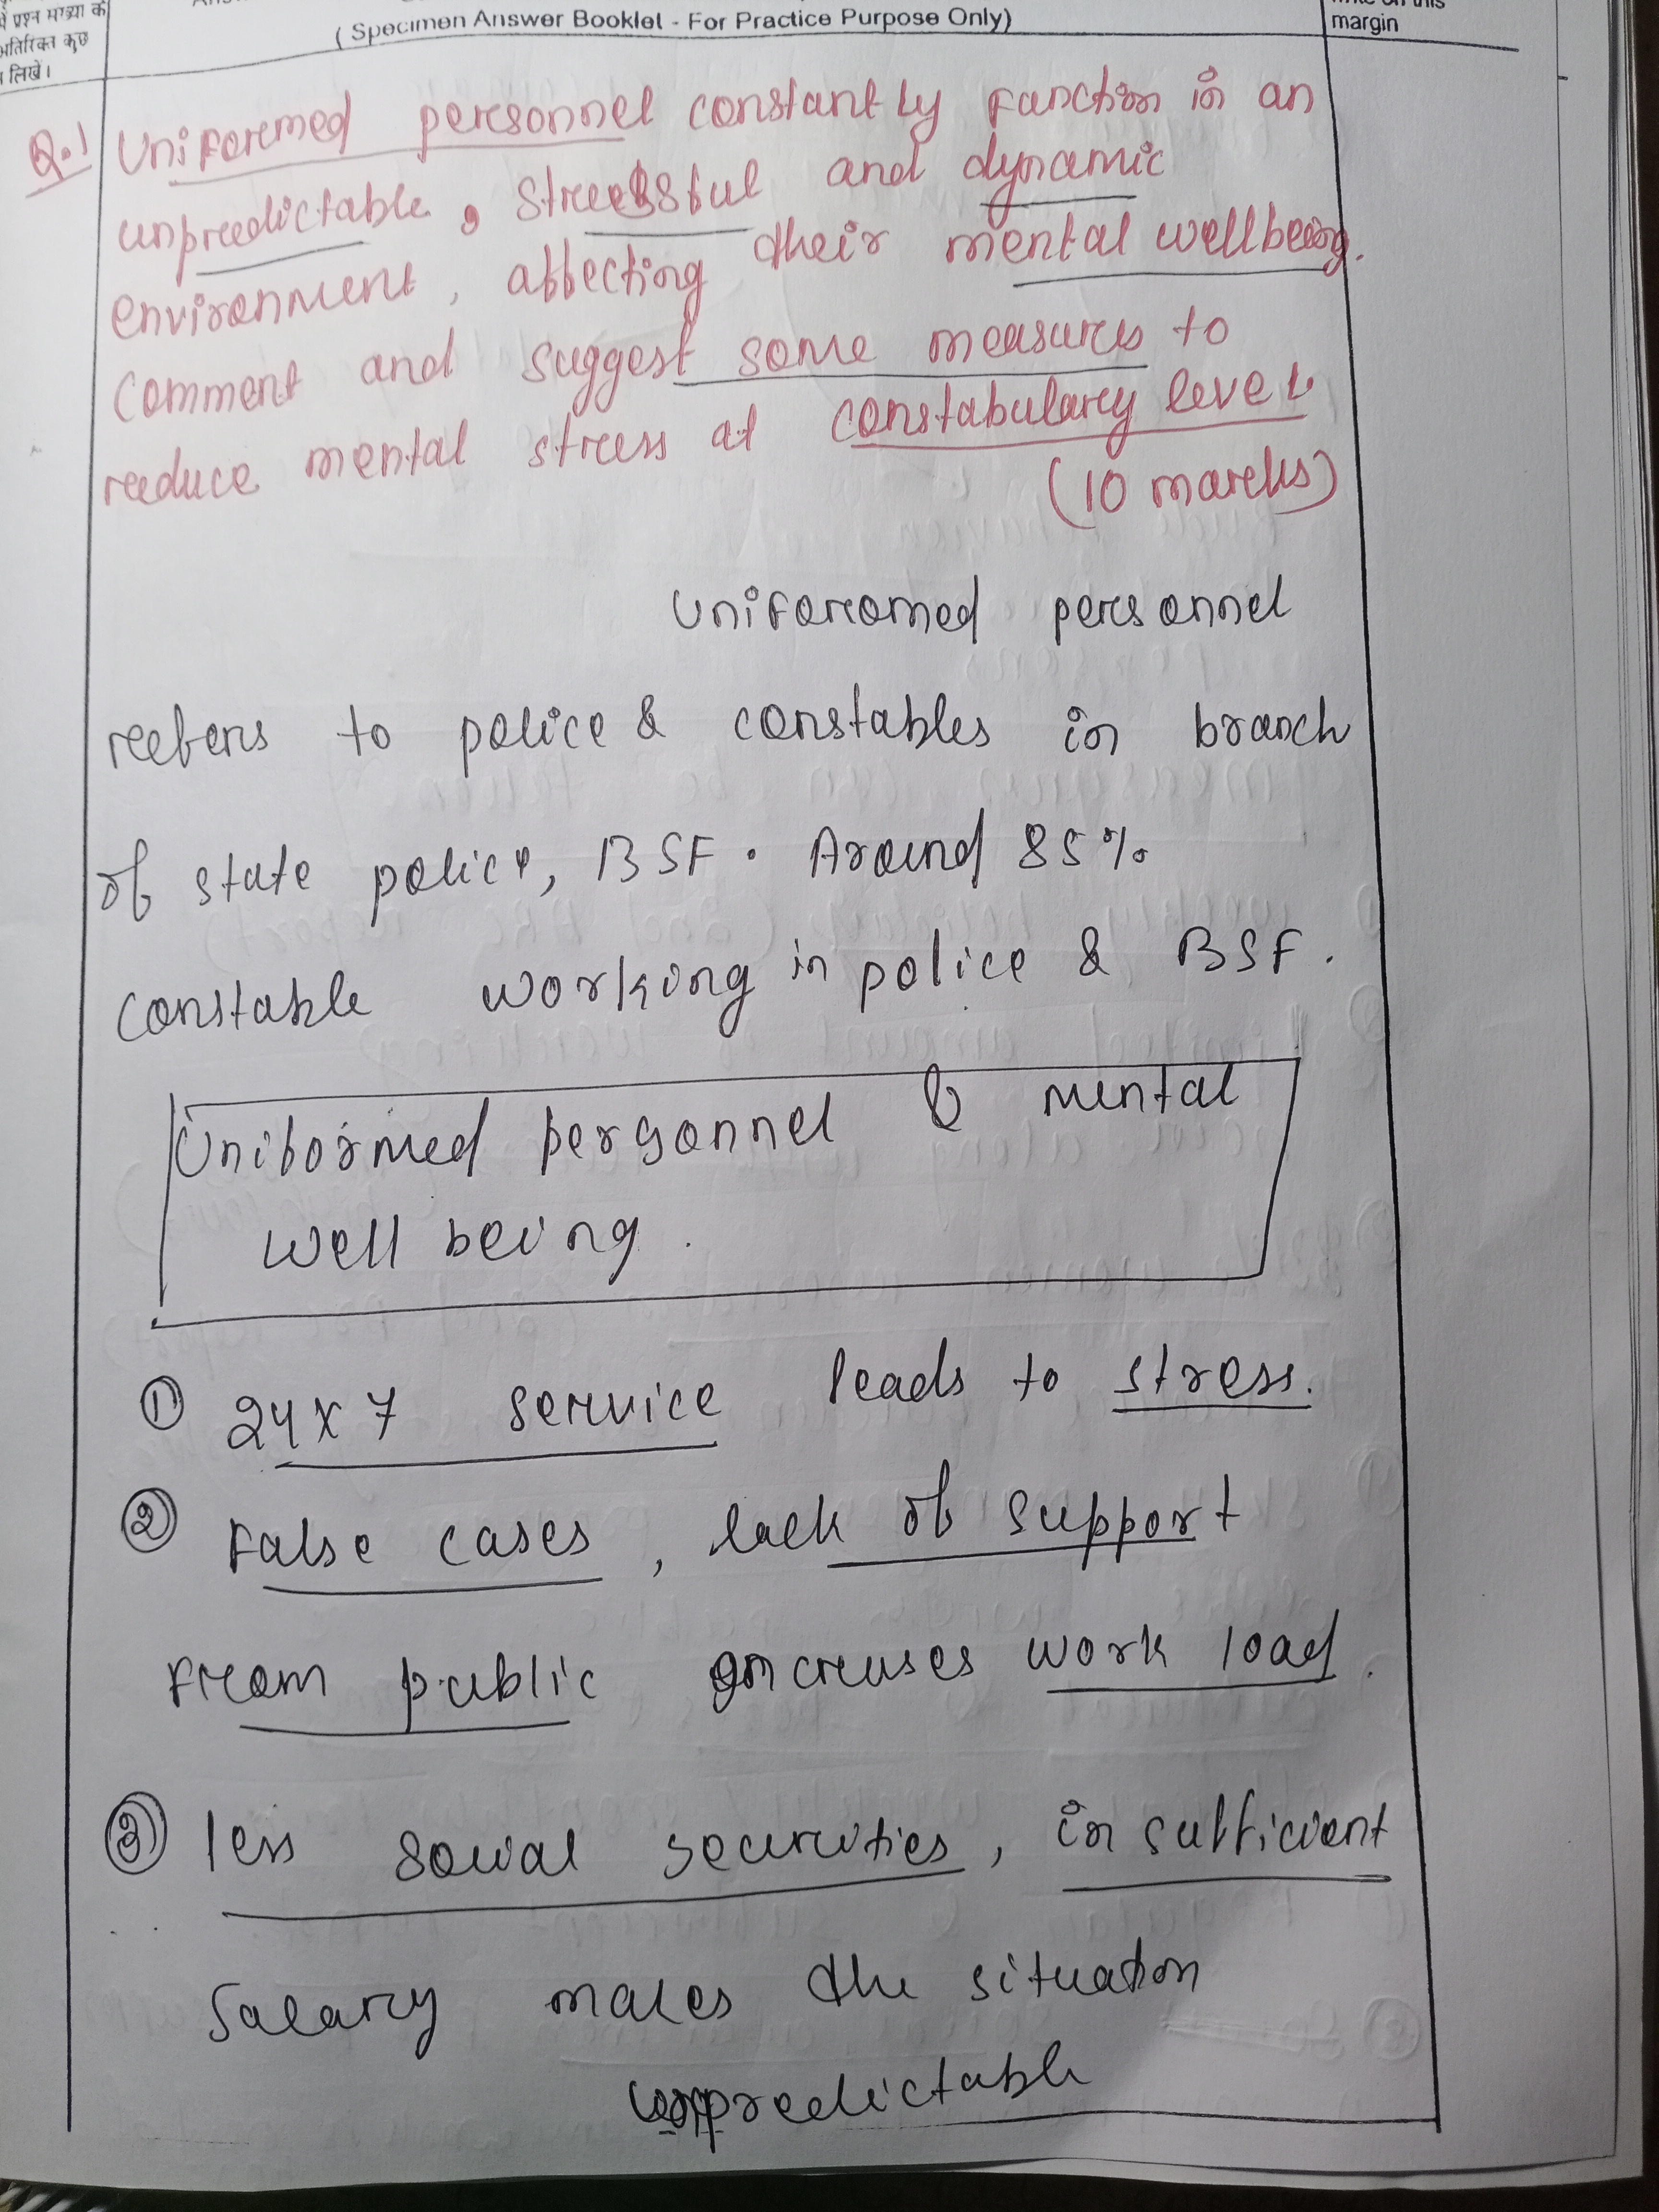 में प्रश्न संख्या के
अतिरिक्त कुछ
न लिखें।
(Specimen Answer Booklet - For Practice Purpose Only)
margin
Q.1 Uniforemed personnel constantly function in an
unpredictable, stressful and dynamic
environment, affecting their mental wellbeing.
Comment and suggest some measures to
reduce mental stress at constabulary level
(10 marks)
Uniforomed personnel
refers to police & constables in branch
of state police, BSF. Around 85%
constable working in police & BSF.
Uniformed personnel & mental
well being.
① 24x7 service leads to stress.
② False cases, lack of support
from public increases work load.
③ less social securities, insufficient
Salary makes the situation
unpredictable